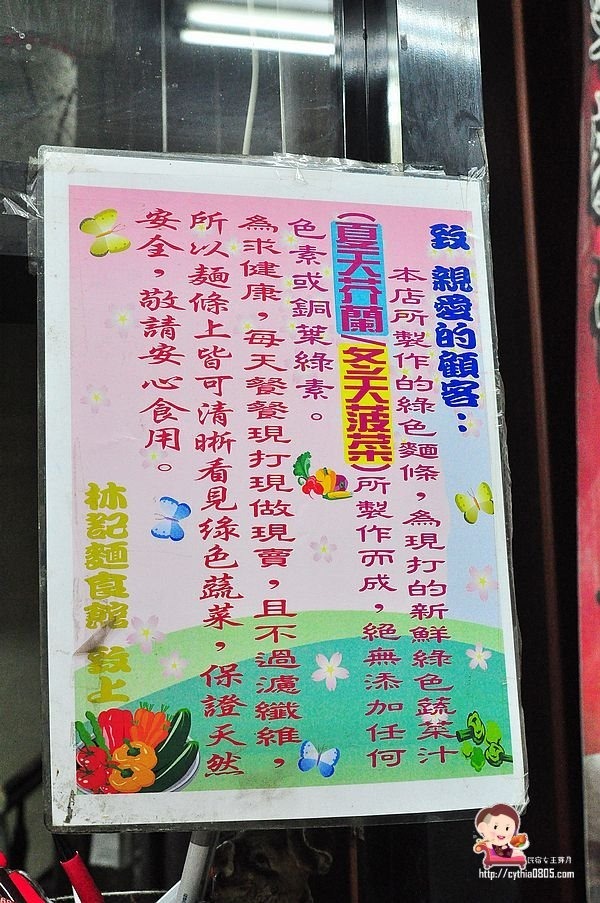 致 親愛的顧客：
本店所製作的綠色麵條，為現打的新鮮綠色蔬菜汁
(夏天芥蘭/冬天菠菜)所製作而成，絕無添加任何
色素或銅葉綠素。
為求健康，每天餐餐現打現做現賣，且不過濾纖維，
所以麵條上皆可清晰看見綠色蔬菜，保證天然
安全，敬請安心食用。
林記麵食館 敬上
民宿女王芽月
http://cythia0805.com